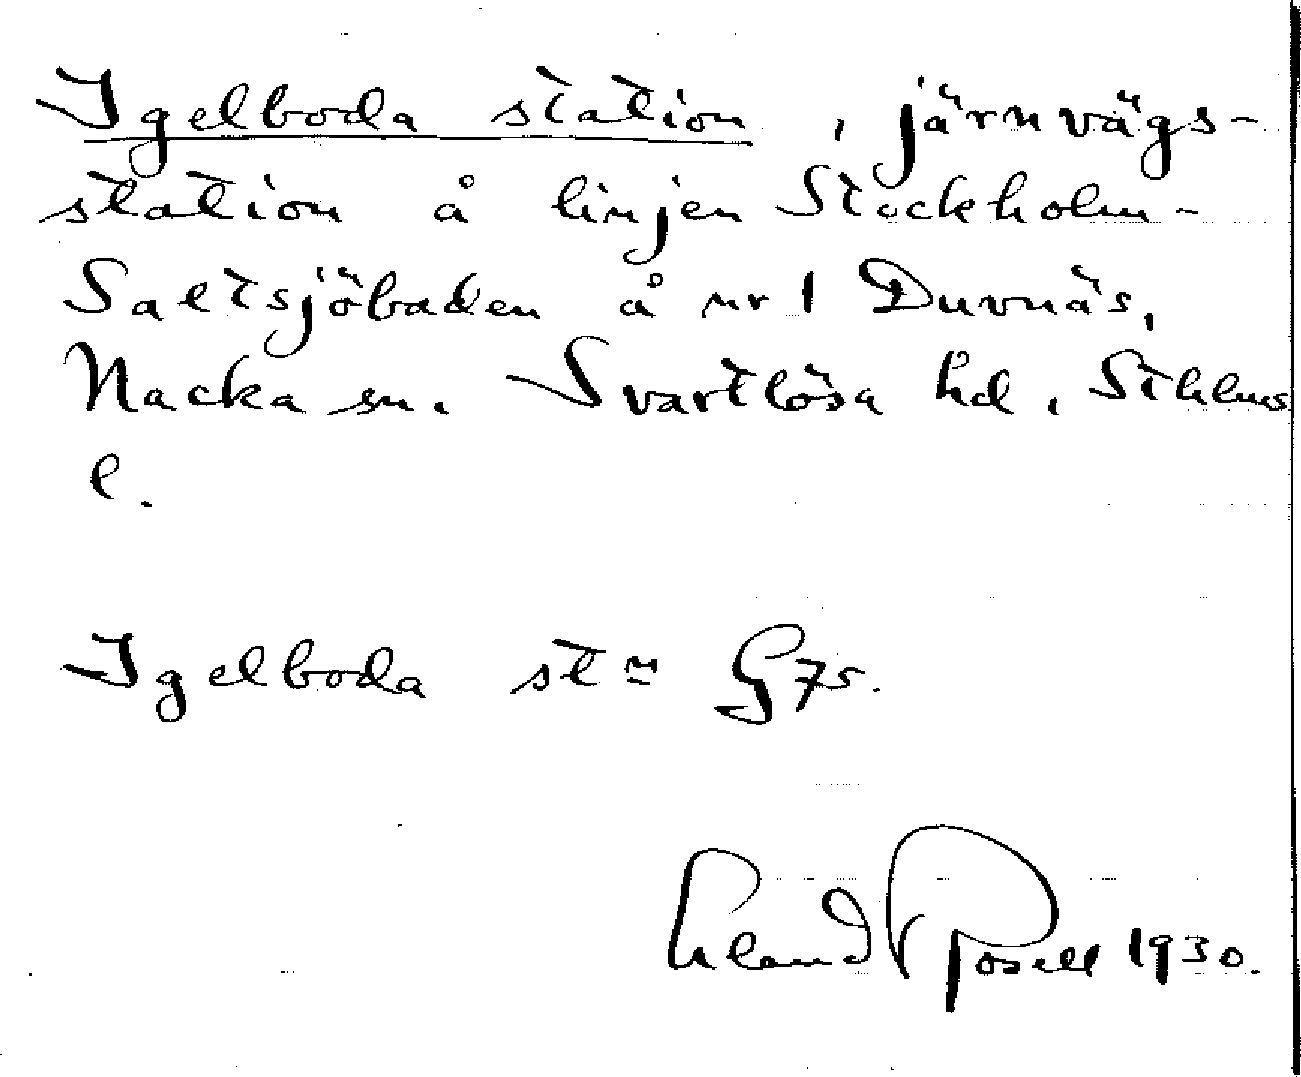 Igelboda station, järnvägs-
station å linjen Stockholm-
Saltsjöbaden å nr 1 Duvnäs,
Nacka sn. Svartlösa hd, Sthlms
l.
Igelboda stn G75.
Erland Rosell 1930.